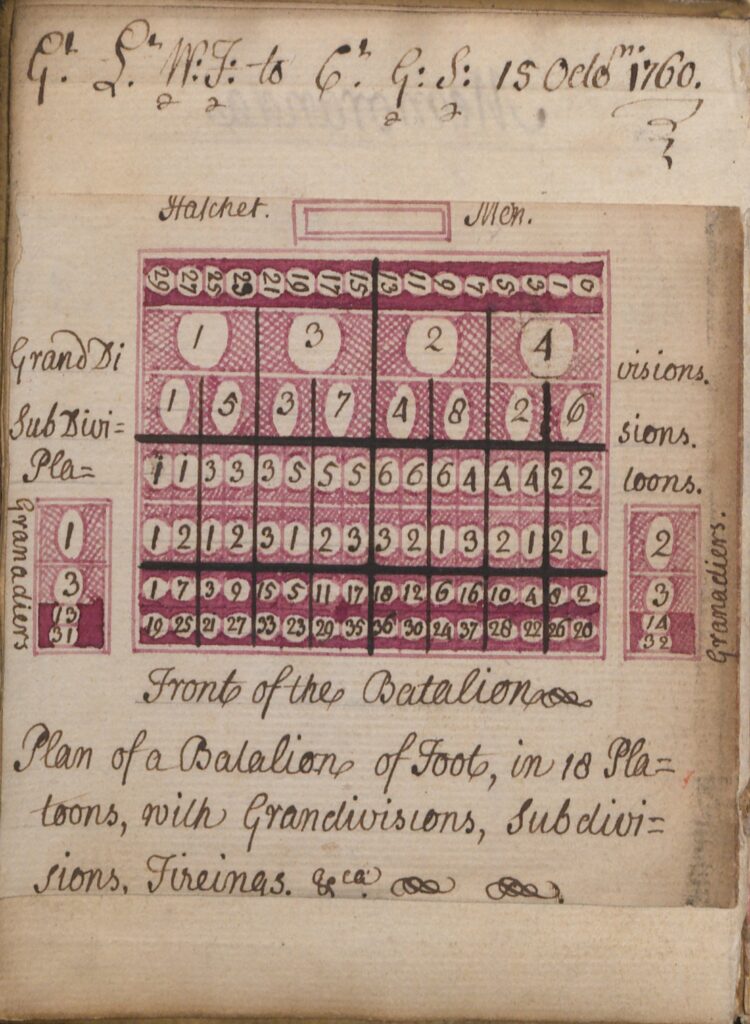 Gt. Lt. W: F: to Ct. G: S: 15 Octobr. 1760.
Hatchet. Men.
29 27 25 23 21 19 17 15 13 11 9 7 5 3 1 0
GrandDi 1 3 2 4 visions.
SubDivi= 1 5 3 7 4 8 2 6 sions.
Pla= 1 1 3 3 3 5 5 5 6 6 6 4 4 4 2 2 toons.
1 2 1 2 3 1 2 3 3 2 1 3 2 1 2 1
1 7 3 9 15 5 11 17 18 12 6 16 10 4 8 2
19 25 21 27 33 23 29 35 36 30 24 37 28 22 26 20
Granadiers
1
3
13
31
2
3
14
32
Granadiers.
Front of the Batalion
Plan of a Batalion of Foot, in 18 Pla=
toons, with Grandivisions, Subdivi=
sions, Fireings. &ca.